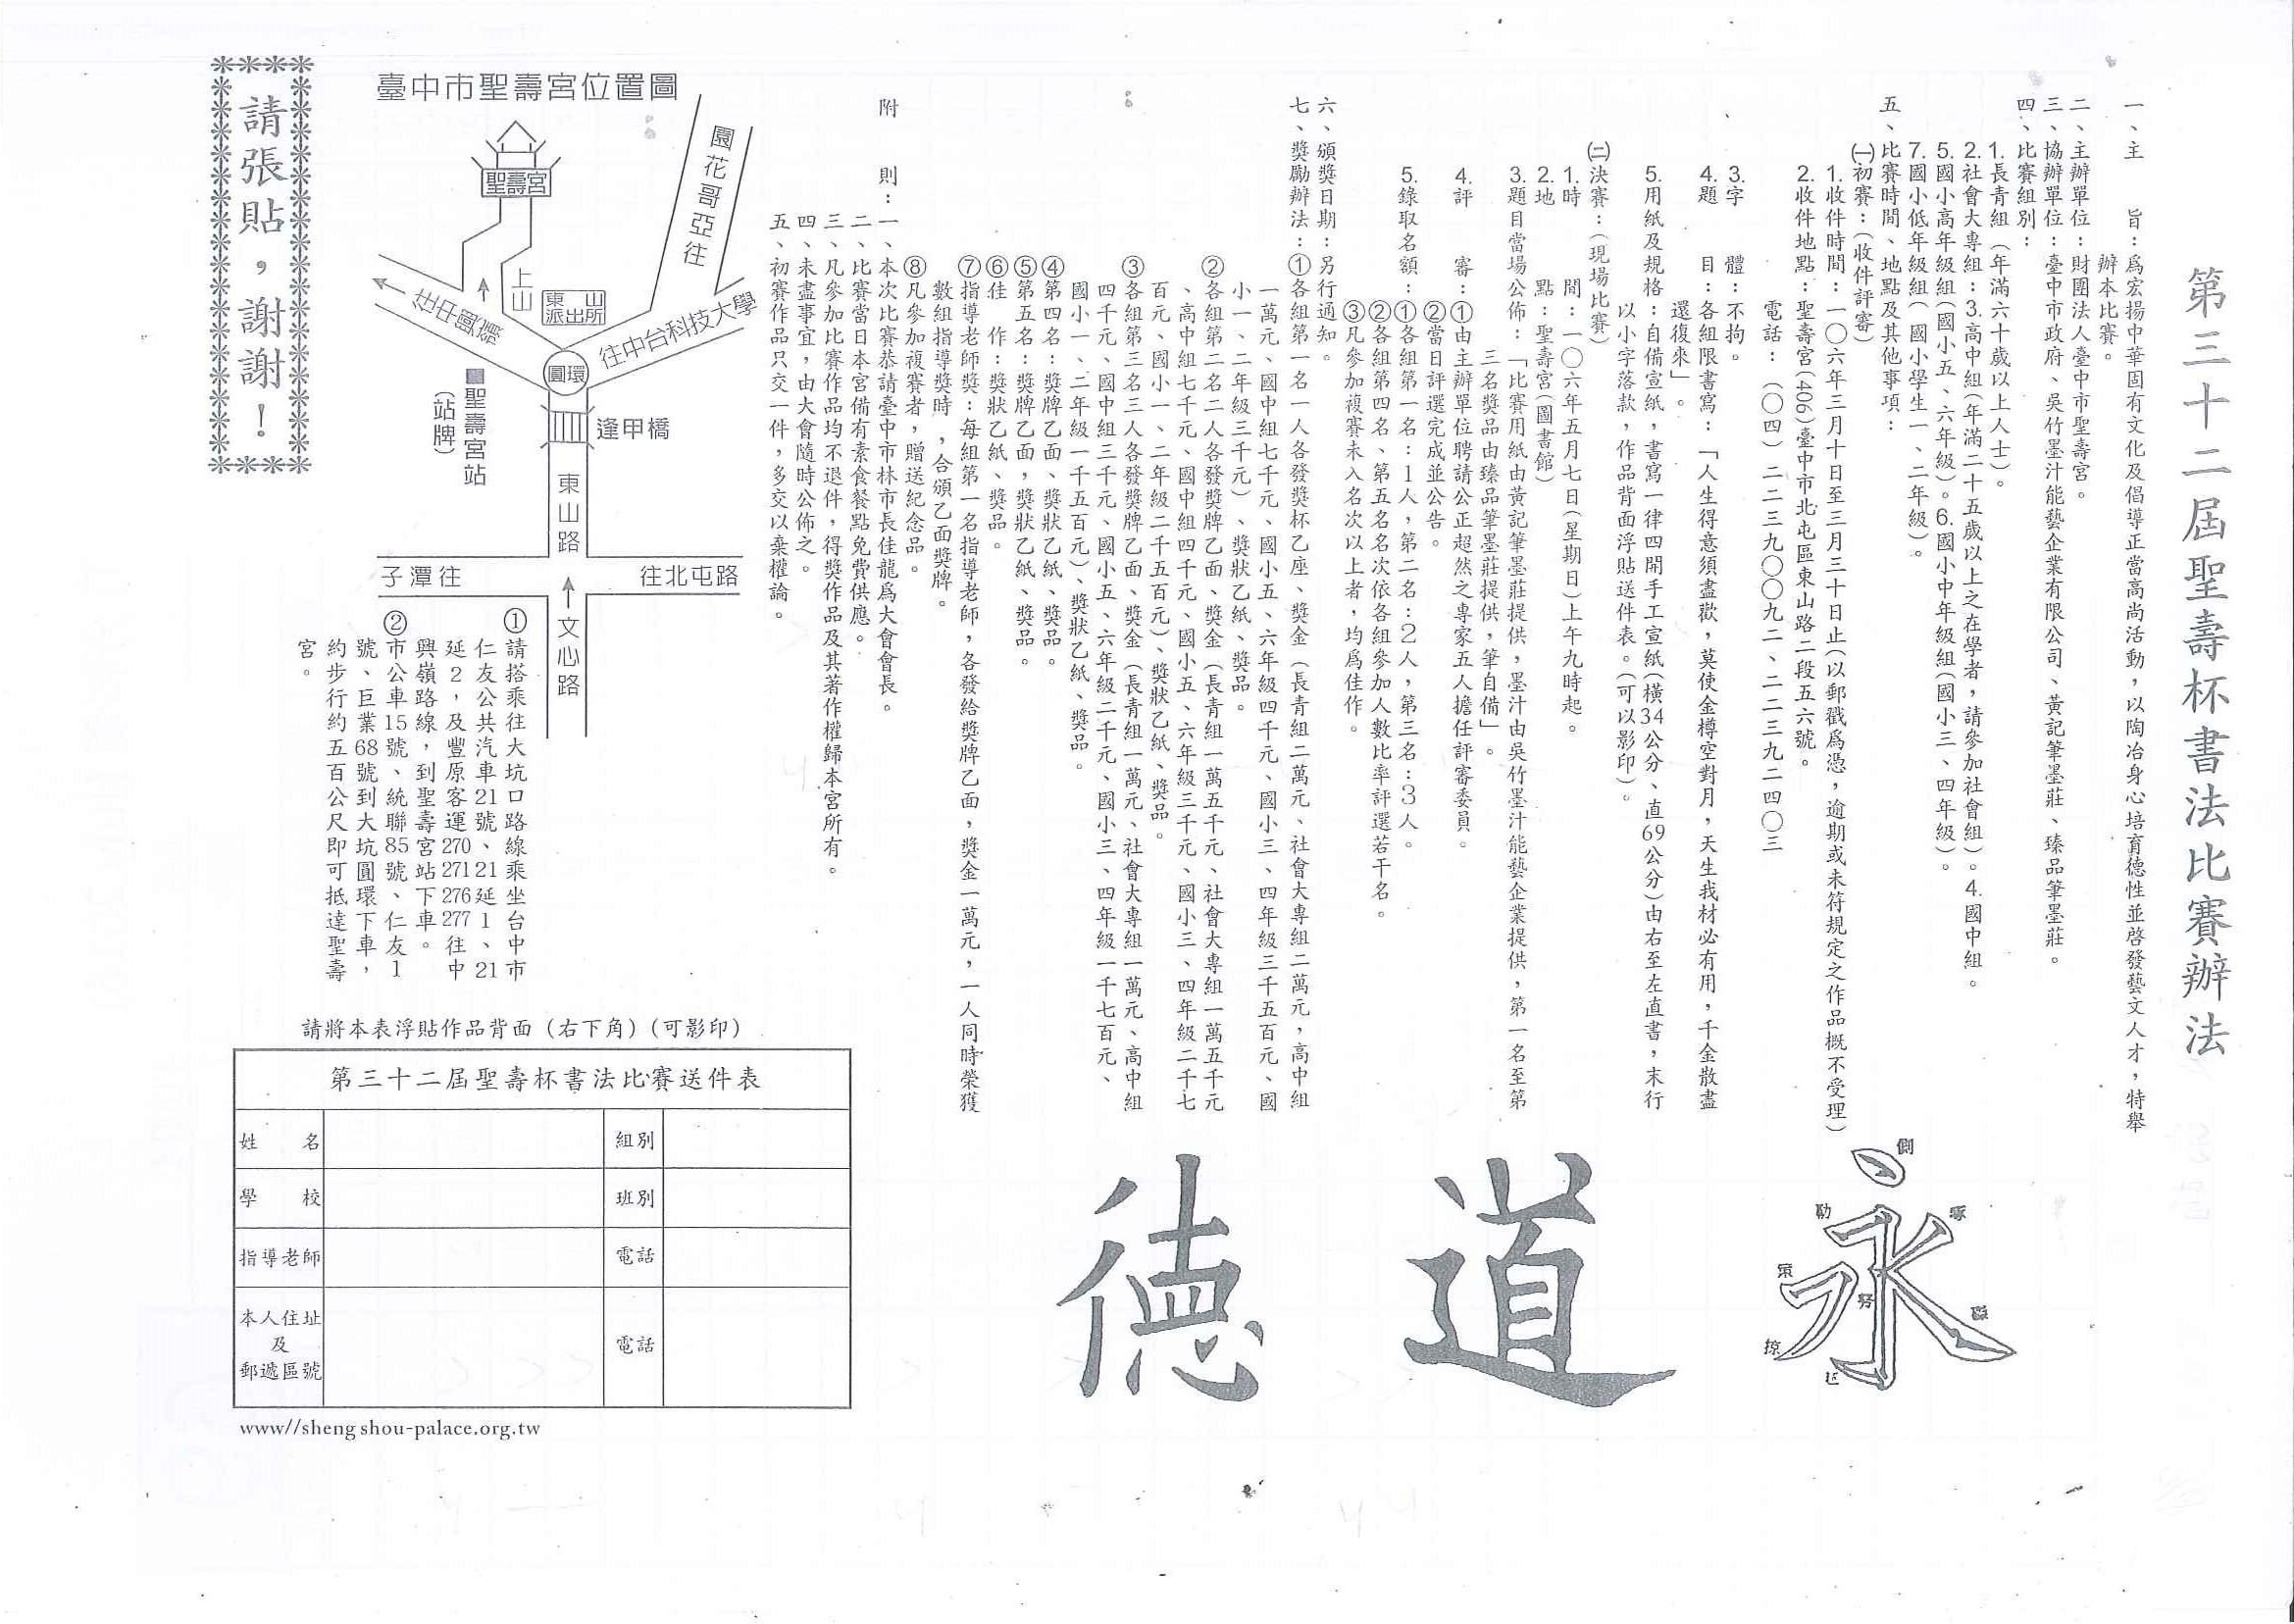 第三十二屆聖壽杯書法比賽辦法
一、主　　旨：為宏揚中華固有文化及倡導正當高尚活動，以陶冶身心培育德性並啓發藝文人才，特舉
辦本比賽。
二、主辦單位：財團法人臺中市聖壽宮。
三、協辦單位：臺中市政府、吳竹墨汁能藝企業有限公司、黃記筆墨莊、臻品筆墨莊。
四、比賽組別：
1.長青組（年滿六十歲以上人士）。
2.社會大專組：3.高中組(年滿二十五歲以上之在學者，請參加社會組)。4.國中組。
5.國小高年級組(國小五、六年級)。6.國小中年級組(國小三、四年級)。
7.國小低年級組(國小學生一、二年級)。
五、比賽時間、地點及其他事項：
㈠初賽：(收件評審)
1.收件時間：一〇六年三月十日至三月三十日止(以郵戳為憑，逾期或未符規定之作品概不受理)
2.收件地點：聖壽宮(406)臺中市北屯區東山路二段五六號。
電話：（〇四）二二三九〇〇九二、二二三九二四〇三
3.字　　體：不拘。
4.題　　目：各組限書寫：「人生得意須盡歡，莫使金樽空對月，天生我材必有用，千金散盡
還復來」。
5.用紙及規格：自備宣紙，書寫一律四開手工宣紙(橫34公分、直69公分)由右至左直書，末行
以小字落款，作品背面浮貼送件表。(可以影印)。
㈡決賽：(現場比賽)
1.時　　間：一〇六年五月七日(星期日)上午九時起。
2.地　　點：聖壽宮(圖書館)
3.題目當場公佈：「比賽用紙由黃記筆墨莊提供，墨汁由吳竹墨汁能藝企業提供，第一名至第
三名獎品由臻品筆墨莊提供，筆自備」。
4.評　　審：①由主辦單位聘請公正超然之專家五人擔任評審委員。
②當日評選完成並公告。
5.錄取名額：①各組第一名：1人，第二名：2人，第三名：3人。
②各組第四名、第五名名次依各組參加人數比率評選若干名。
③凡參加複賽未入名次以上者，均為佳作。
六、頒獎日期：另行通知。
七、獎勵辦法：①各組第一名一人各發獎杯乙座、獎金（長青組二萬元、社會大專組二萬元，高中組
一萬元、國中組七千元、國小五、六年級四千元、國小三、四年級三千五百元、國
小一、二年級三千元）、獎狀乙紙、獎品。
②各組第二名二人各發獎牌乙面、獎金（長青組一萬五千元、社會大專組一萬五千元
、高中組七千元、國中組四千元、國小五、六年級三千元、國小三、四年級二千七
百元、國小一、二年級二千五百元）、獎狀乙紙、獎品。
③各組第三名三人各發獎牌乙面、獎金（長青組一萬元、社會大專組一萬元、高中組
四千元、國中組三千元、國小五、六年級二千元、國小三、四年級一千七百元、
國小一、二年級一千五百元）、獎狀乙紙、獎品。
④第四名：獎牌乙面、獎狀乙紙、獎品。
⑤第五名：獎牌乙面，獎狀乙紙、獎品。
⑥佳　作：獎狀乙紙、獎品。
⑦指導老師獎：每組第一名指導老師，各發給獎牌乙面，獎金一萬元，一人同時榮獲
數組指導獎時，合頒乙面獎牌。
⑧凡參加複賽者，贈送紀念品。
附　　則：一、本次比賽恭請臺中市林市長佳龍為大會會長。
二、比賽當日本宮備有素食餐點免費供應。
三、凡參加比賽作品均不退件，得獎作品及其著作權歸本宮所有。
四、未盡事宜，由大會隨時公佈之。
五、初賽作品只交一件，多交以棄權論。
側
勒
啄
策
努
磔
掠
永
道
德
臺中市聖壽宮位置圖
聖壽宮
往亞哥花園
上山
東山派出所
往中台科技大學
圓環
■聖壽宮站
（站牌）
逢甲橋
東山路
往潭子
往北屯路
文心路
①請搭乘往大坑口路線乘坐台中市
仁友公共汽車21號、21延1、21
延2，及豐原客運270 271 276 277往中
興嶺路線，到聖壽宮站下車。
②市公車15號、統聯85號、仁友1
號、巨業68號到大坑圓環下車，
約步行約五百公尺即可抵達聖壽
宮。
請張貼，謝謝！
請將本表浮貼作品背面（右下角）（可影印）
第三十二屆聖壽杯書法比賽送件表
姓　名　組別
學　校　班別
指導老師　電話
本人住址
及
郵遞區號
電話
www//shengshou-palace.org.tw